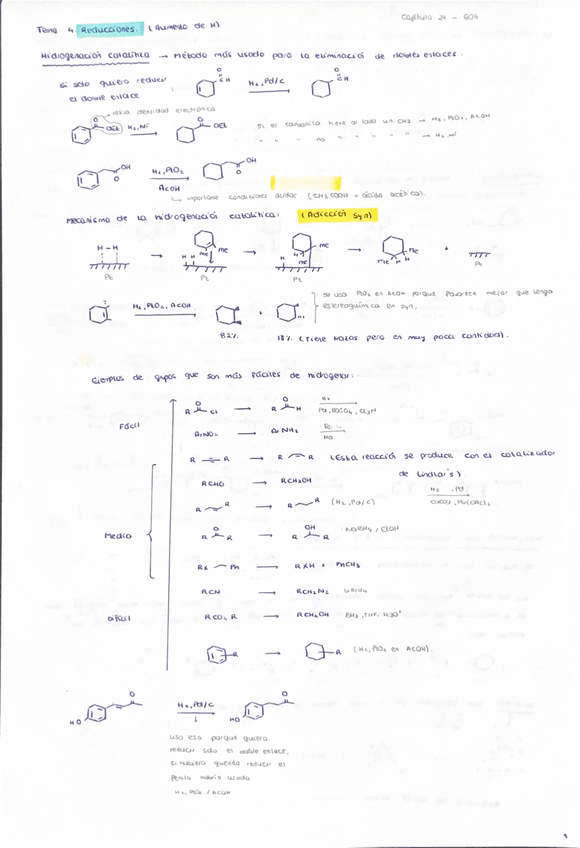 Tema 4 Reducciones. (Aumento de H)
Capítulo 24 - 604
Hidrogenación catalítica → Método más usado para la eliminación de dobles enlaces.
Si solo quiero reducir
el doble enlace
H₂, Pd/C
densidad electrónica
OEt H₂, Ni OEt
OH H₂, PtO₂ OH
AcOH
→ importante condiciones ácidas (CH3COOH = ácido acético).
Mecanismo de la hidrogenación catalítica: (Adicción syn)
H - H
Me
Me
Pt
Pt
Pt
Pt
H₂, PtO₂, AcOH
se usa PtO₂ en AcOH porque favorece mejor que tenga
estereoquímica en syn.
82% 18% (tiene trazas pero en muy poca cantidad).
Ejemplos de grupos que son más fáciles de hidrogenar:
Fácil
R Cl → R H
ArNO₂ → ArNH₂
R R → R R (Esta reacción se produce con el catalizador
de Lindlar's)
RCHO → RCH₂OH
H₂, Pd
R R → R R (H₂, Pd/C)
Medio
R R → R OH R
RX Ph → RXH + PhCH₃
RCN → RCH₂N₂
Difícil
RCO₂R → RCH₂OH
R → R (H₂, PtO₂ en AcOH).
HO O H₂, Pd/C HO O
uso eso porque quiero
reducir solo el doble enlace,
si hubiera querido reducir el
fenilo habría usado
H₂, PtO₂ / AcOH
1